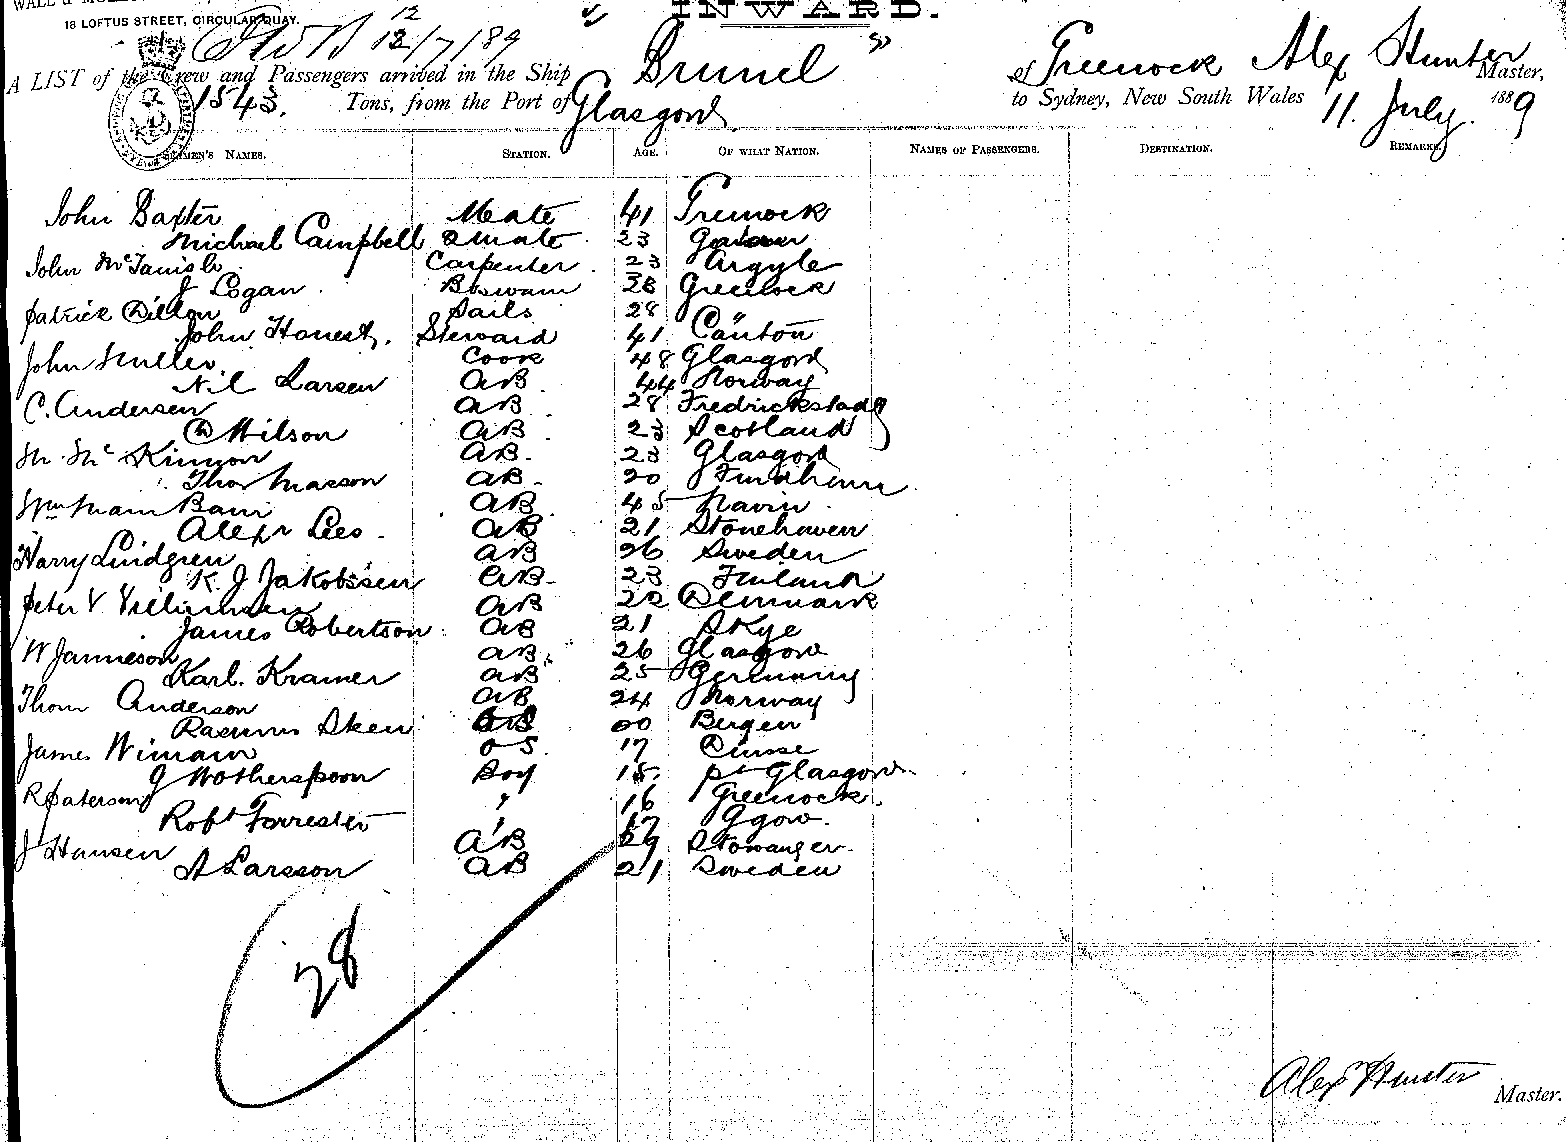 18 LOFTUS STREET, CIRCULAR QUAY.
INWARD.
12/7/89
A LIST of the Crew and Passengers arrived in the Ship "Brunel" of Greenock Alex Hunter Master,
1543. Tons, from the Port of Glasgow to Sydney, New South Wales 11. July. 1889
SEAMEN'S NAMES. STATION. AGE. OF WHAT NATION. NAMES OF PASSENGERS. DESTINATION. REMARKS.
John Baxter Mate 41 Greenock
Michael Campbell 2 Mate 23
John Carpenter 23 Argyle
J Logan Boswain 28 Greenock
Patrick Dillon Sails 28 "
John Honest. Steward 41 Canton
John Cook 48 Glasgow
Larsen AB 44 Norway
C. Andersen AB 28 Fredrickstadt
Wilson AB 23 Scotland
M. Mc Kinnon AB 23 Glasgow
Thos Masson AB 20
Bain AB 45 Nairn
Alexr Lees AB 21 Stonehaven
Harry Lindgren AB 26 Sweden
K. J Jakobssen AB 23 Finland
Peter V AB 22 Denmark
James Robertson AB 21 Skye
W Jamieson AB 26 Glasgow
Karl. Kramer AB 25 Germany
Thom Anderson AB 24 Norway
Rasmus Bergen
James OS 17
J Wotherspoon Boy 15 pt Glasgow
R Paterson " 16 Greenock
Robt Forrester " 17 Ggow.
J Hansen AB Stowanger
A Larsson AB 21 Sweden
28
Alexr Hunter Master.